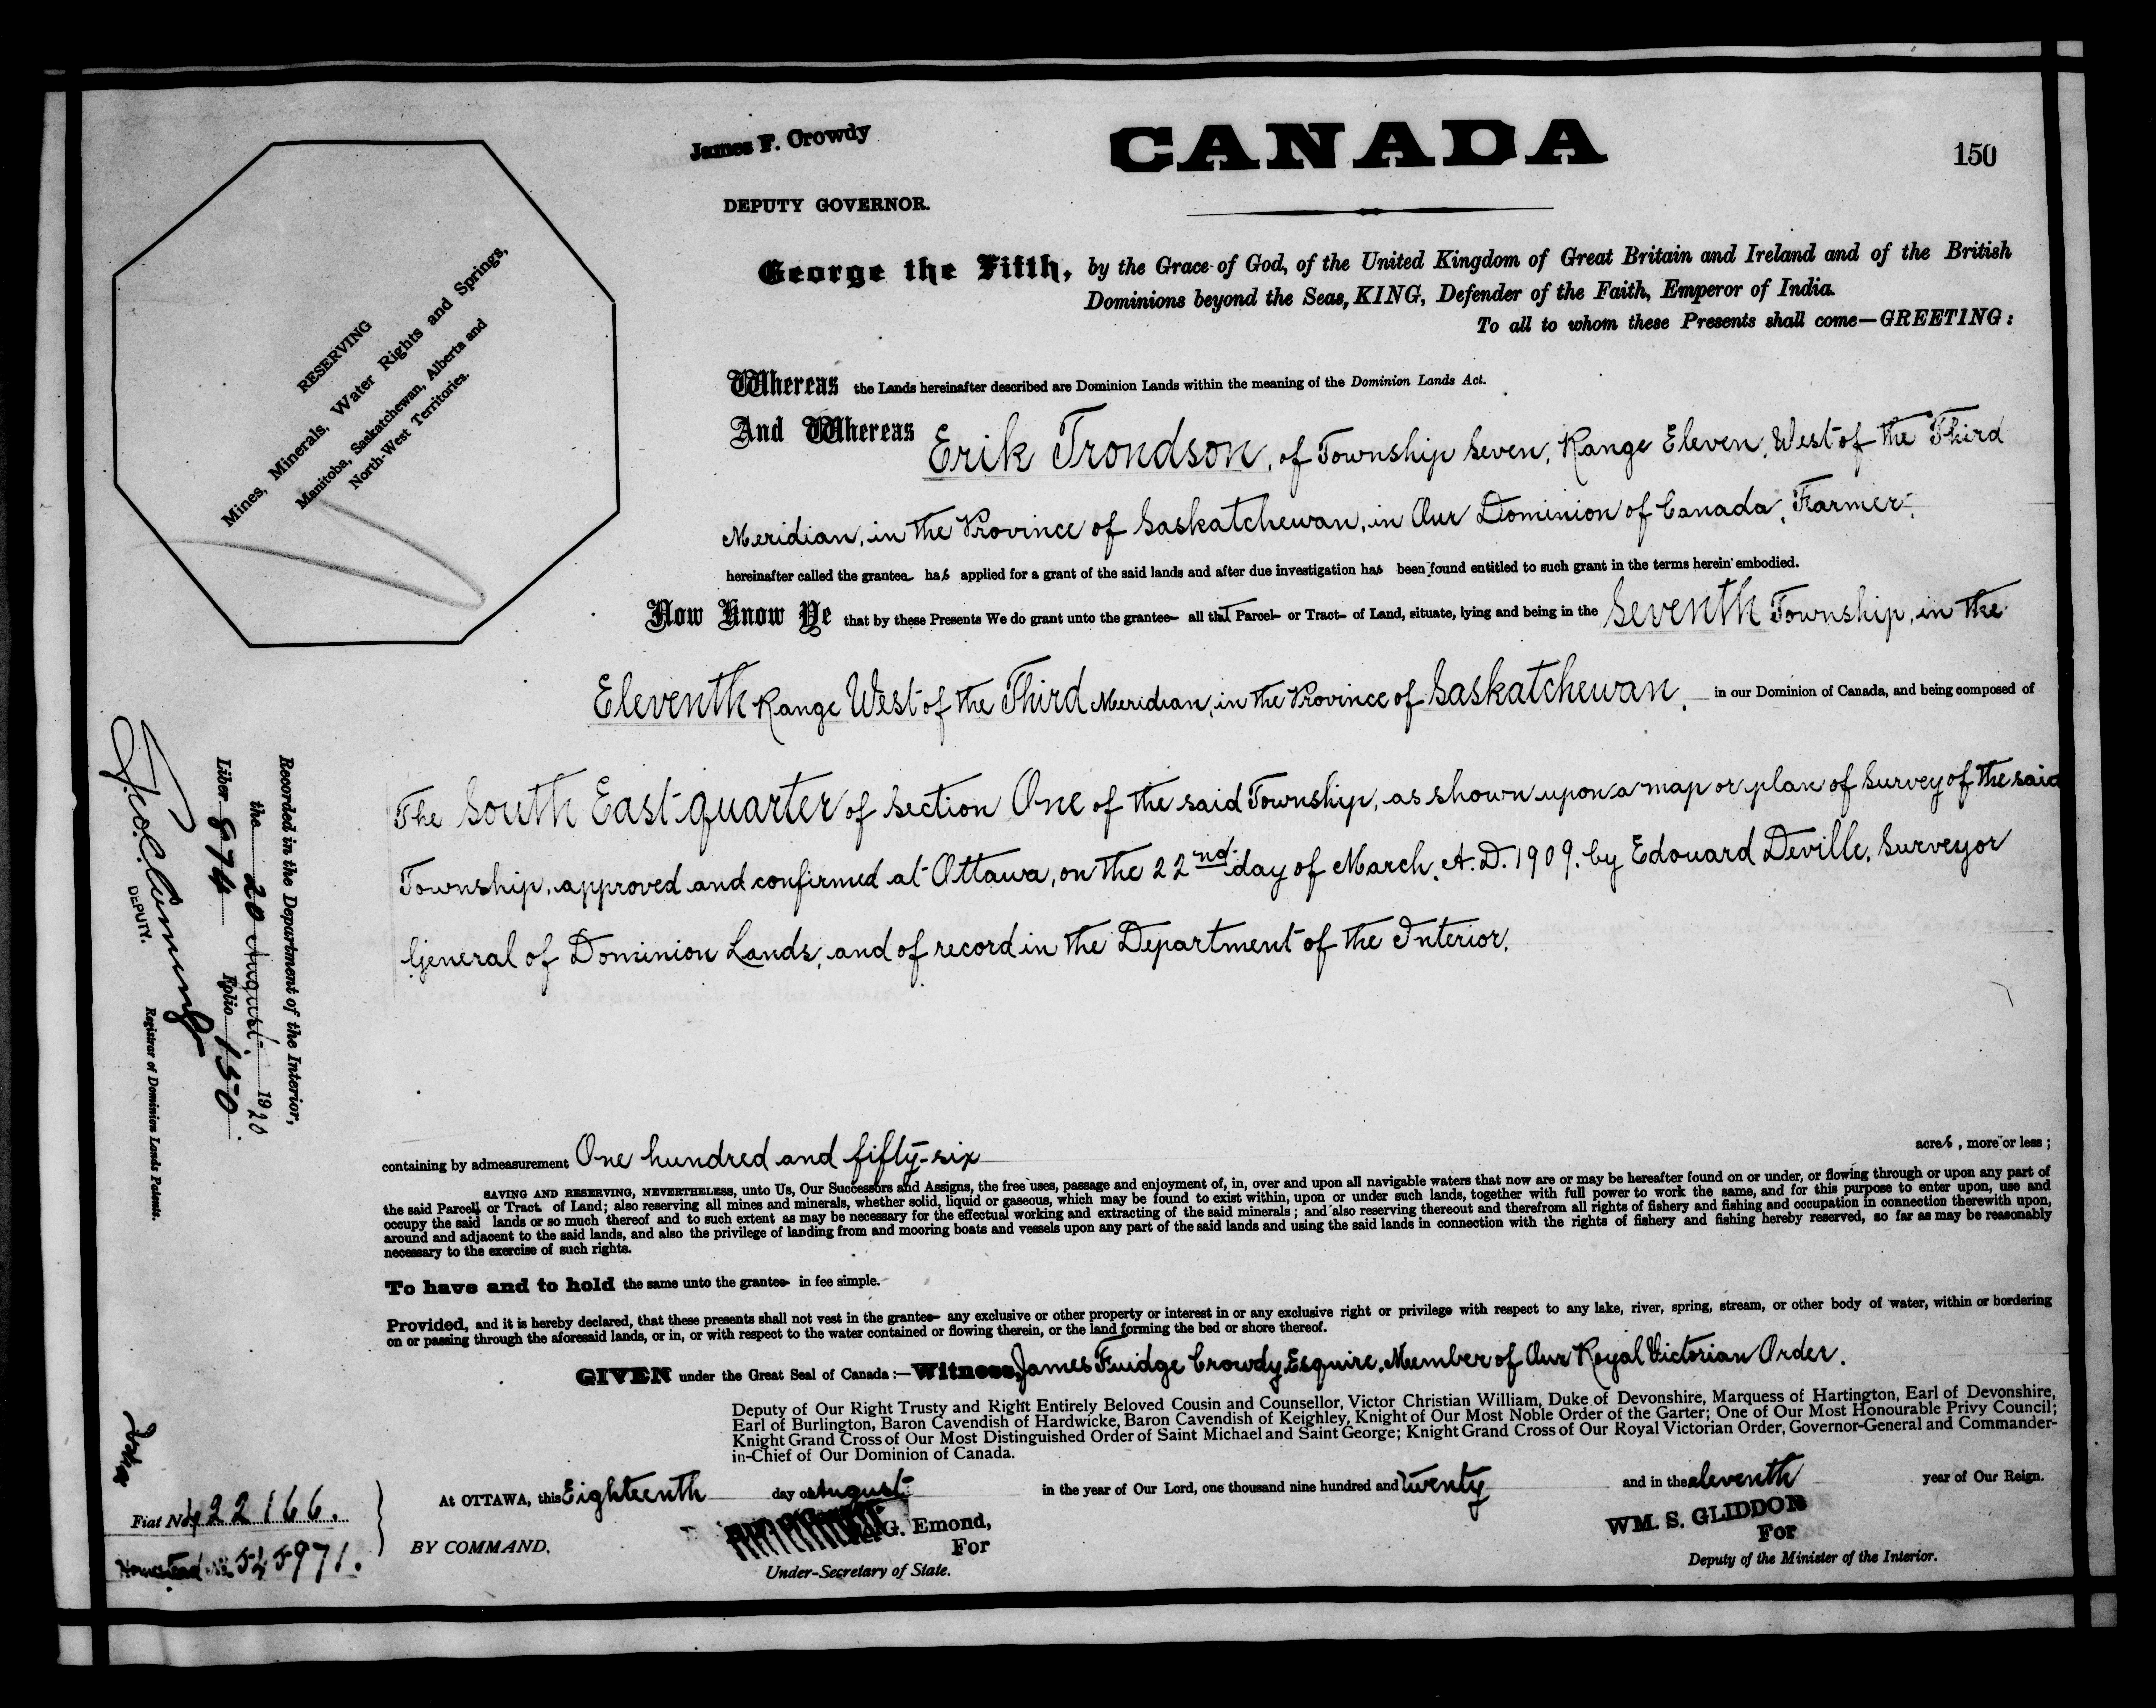 James F. Crowdy
DEPUTY GOVERNOR.
CANADA
150
George the Fifth, by the Grace of God, of the United Kingdom of Great Britain and Ireland and of the British
Dominions beyond the Seas, KING, Defender of the Faith, Emperor of India.
To all to whom these Presents shall come—GREETING:
RESERVING
Mines, Minerals, Water Rights and Springs,
Manitoba, Saskatchewan, Alberta and
North-West Territories.
Whereas the Lands hereinafter described are Dominion Lands within the meaning of the Dominion Lands Act.
And Whereas Erik Trondson, of Township Seven, Range Eleven, West of the Third
Meridian, in the Province of Saskatchewan, in Our Dominion of Canada, Farmer,
hereinafter called the grantee has applied for a grant of the said lands and after due investigation has been found entitled to such grant in the terms herein embodied.
Now Know Ye that by these Presents We do grant unto the grantee all that Parcel or Tract of Land, situate, lying and being in the Seventh Township, in the
Eleventh Range West of the Third Meridian, in the Province of Saskatchewan, in our Dominion of Canada, and being composed of
The South East quarter of Section One of the said Township, as shown upon a map or plan of Survey of the said
Township, approved and confirmed at Ottawa, on the 22nd day of March, A.D. 1909, by Edouard Deville, Surveyor
General of Dominion Lands, and of record in the Department of the Interior.
Recorded in the Department of the Interior,
the 20 August 1920
Liber 874 Folio 150
DEPUTY.
Registrar of Dominion Lands Patents.
containing by admeasurement One hundred and fifty-six acres, more or less;
SAVING AND RESERVING, NEVERTHELESS, unto Us, Our Successors and Assigns, the free uses, passage and enjoyment of, in, over and upon all navigable waters that now are or may be hereafter found on or under, or flowing through or upon any part of
the said Parcel or Tract of Land; also reserving all mines and minerals, whether solid, liquid or gaseous, which may be found to exist within, upon or under such lands, together with full power to work the same, and for this purpose to enter upon, use and
occupy the said lands or so much thereof and to such extent as may be necessary for the effectual working and extracting of the said minerals; and also reserving thereout and therefrom all rights of fishery and fishing and occupation in connection therewith upon,
around and adjacent to the said lands, and also the privilege of landing from and mooring boats and vessels upon any part of the said lands and using the said lands in connection with the rights of fishery and fishing hereby reserved, so far as may be reasonably
necessary to the exercise of such rights.
To have and to hold the same unto the grantee in fee simple.
Provided, and it is hereby declared, that these presents shall not vest in the grantee any exclusive or other property or interest in or any exclusive right or privilege with respect to any lake, river, spring, stream, or other body of water, within or bordering
on or passing through the aforesaid lands, or in, or with respect to the water contained or flowing therein, or the land forming the bed or shore thereof.
GIVEN under the Great Seal of Canada:—Witness, James Fuidge Crowdy, Esquire, Member of Our Royal Victorian Order,
Deputy of Our Right Trusty and Right Entirely Beloved Cousin and Counsellor, Victor Christian William, Duke of Devonshire, Marquess of Hartington, Earl of Devonshire,
Earl of Burlington, Baron Cavendish of Hardwicke, Baron Cavendish of Keighley, Knight of Our Most Noble Order of the Garter; One of Our Most Honourable Privy Council;
Knight Grand Cross of Our Most Distinguished Order of Saint Michael and Saint George; Knight Grand Cross of Our Royal Victorian Order, Governor-General and Commander-
in-Chief of Our Dominion of Canada.
At OTTAWA, this Eighteenth day of August in the year of Our Lord, one thousand nine hundred and twenty and in the eleventh year of Our Reign.
Fiat No. 422166.
Homestead No. 545971.
BY COMMAND,
G. Emond,
For
Under-Secretary of State.
WM. S. GLIDDON
For
Deputy of the Minister of the Interior.